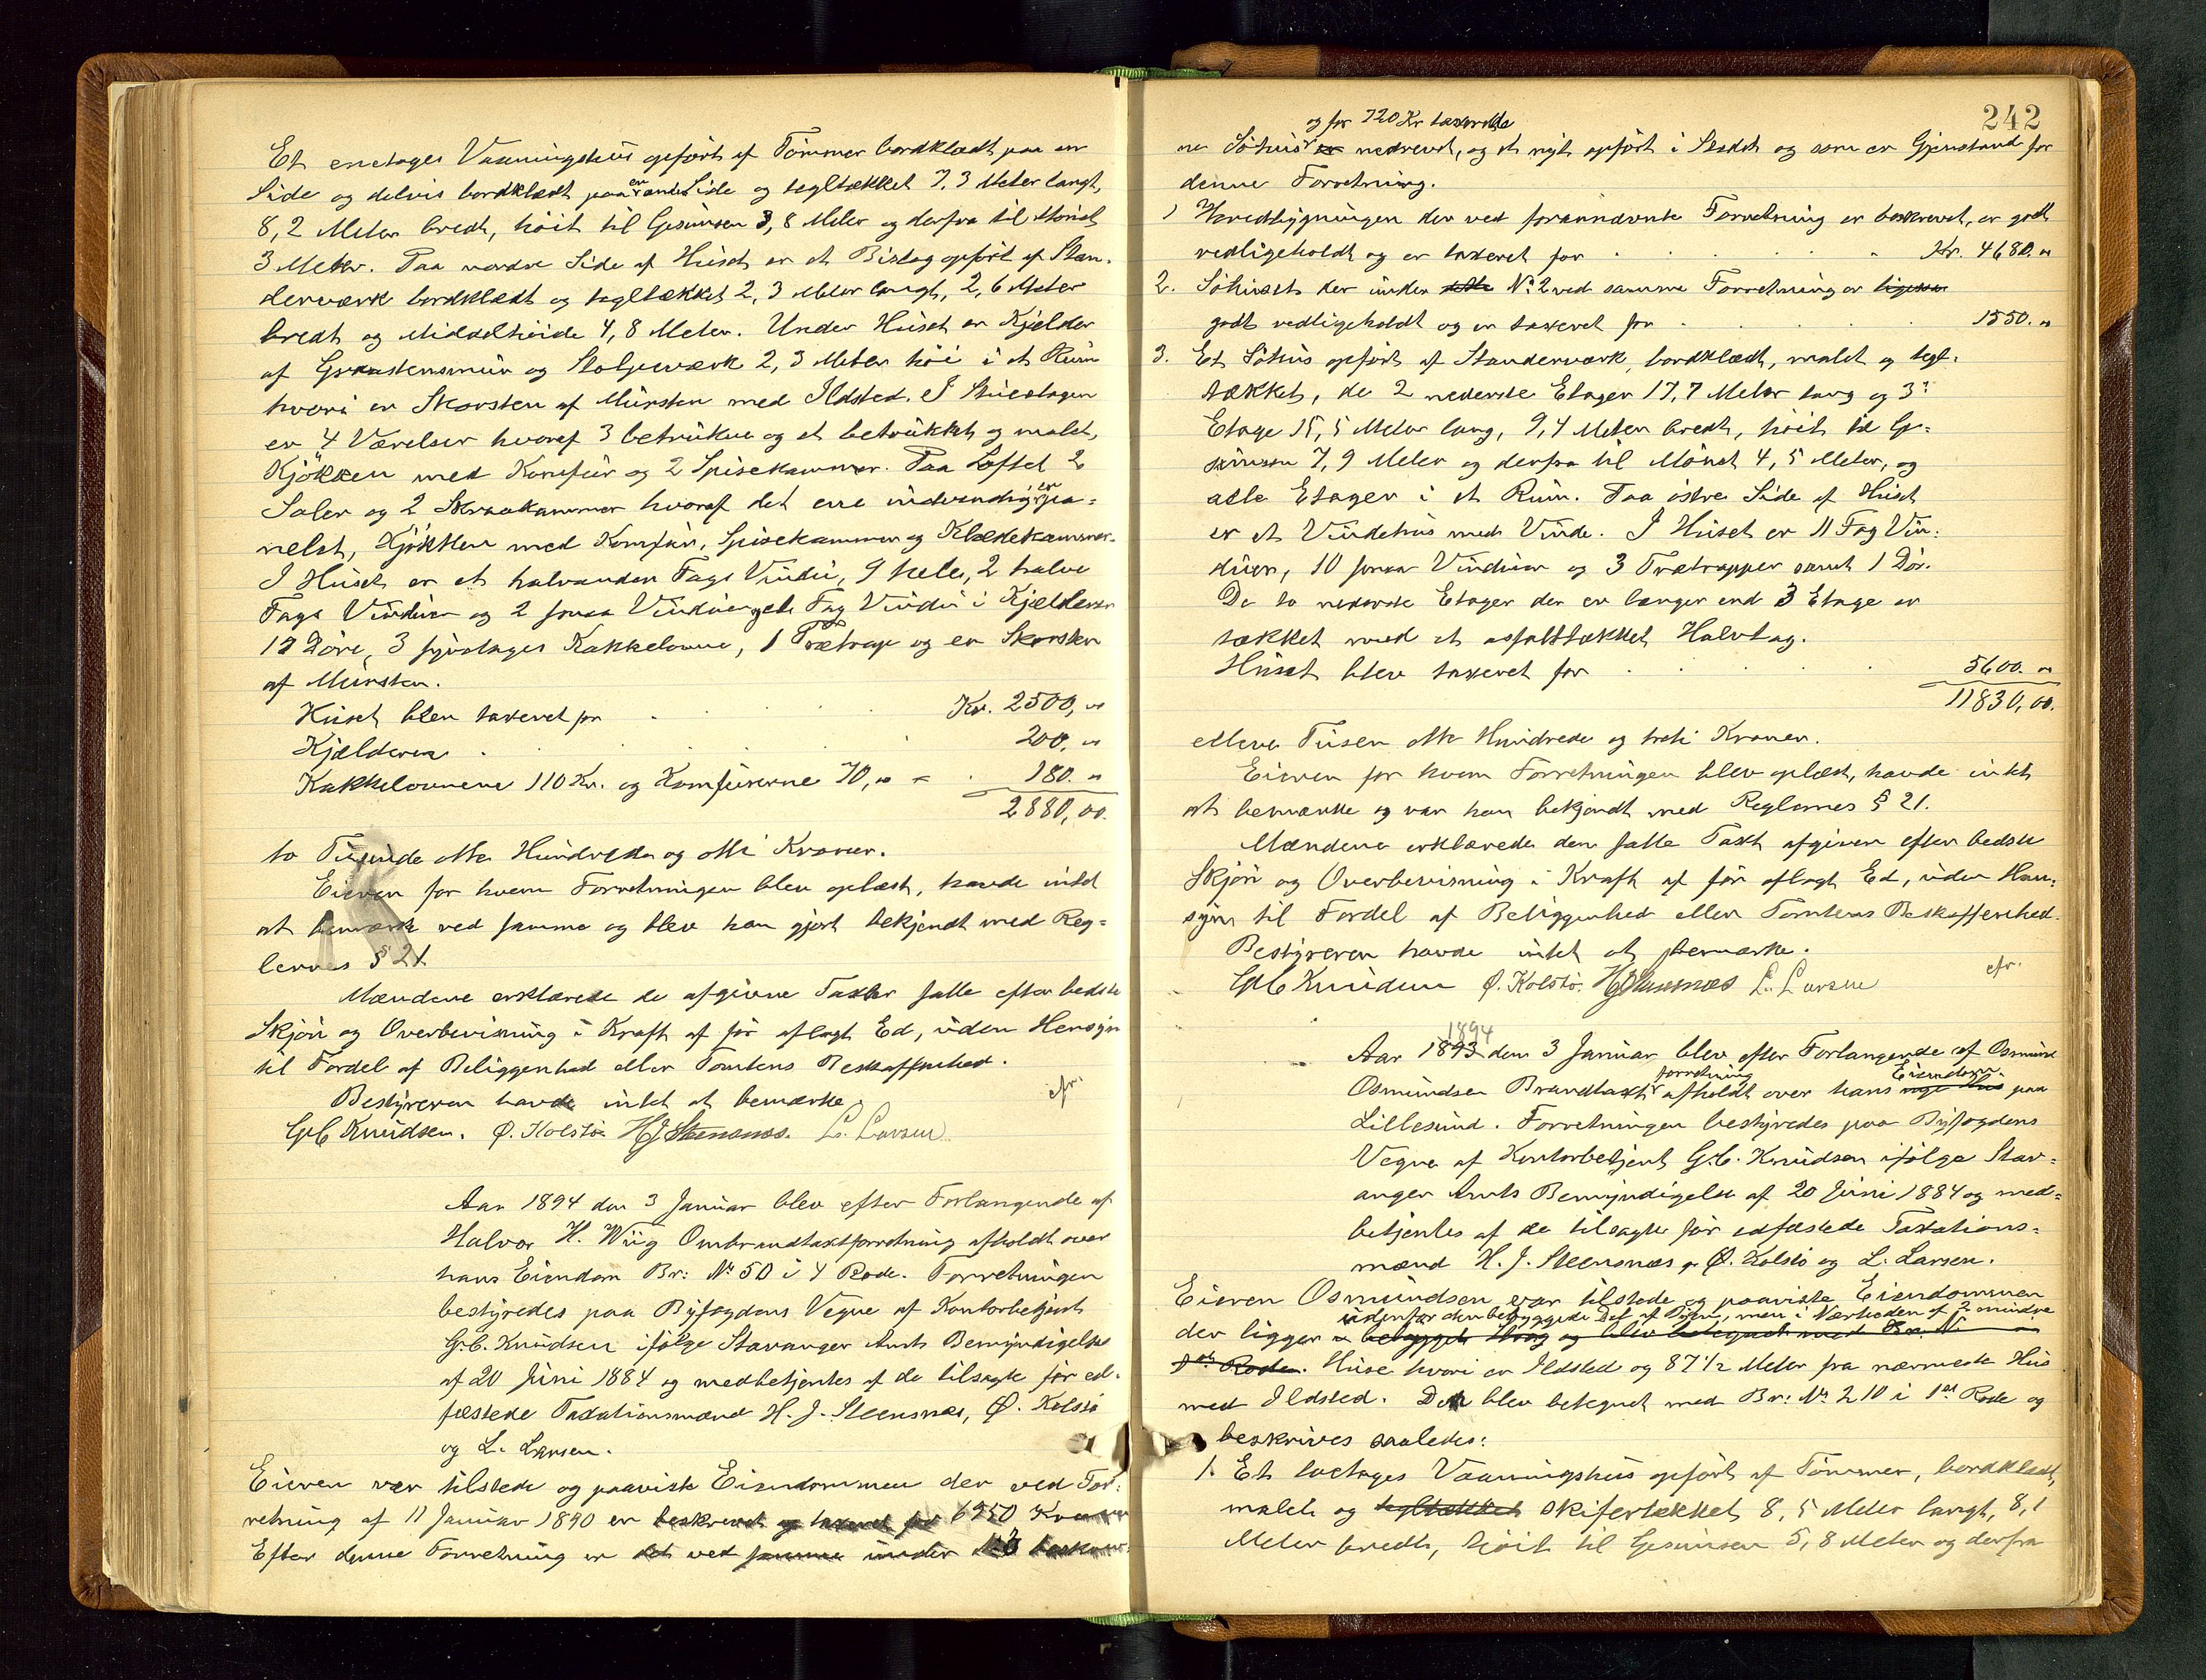 Et enetages Vaaningshus opført af Tømmer bordklædt paa en
Side og delvis bordklædt paa en anden Side og tegltækket 7,3 Meter langt,
8,2 Meter bredt, höit til Gesimsen 3,8 Meter og derfra til Mönet
3 Meter. Paa nordre Side af Huset er et Bislag opført af Stan-
derværk bordklædt og tegltækket 2,3 Meter langt, 2,6 Meter
bredt og Middelhöide 4,8 Meter. Under Huset er Kjælder
af Graastensmur og Stolpeværk 2,3 Meter höi i et Rum
hvori er Skorsten af Mursten med Ildsted. I Stueetagen
er 4 Værelser hvoraf 3 betrukne og et betrukket og malet,
Kjökken med Komfur og 2 Spisekammer. Paa Loftet 2
Saler og 2 Skraakammer hvoraf det ene indvendig er pa-
nelet, Kjökken med Komfur, Spisekammer og Klædekammer.
I Huset er et halvanden Fags Vindu, 9 hele, 2 halve
Fags Vinduer og 2 smaa Vinduer, et Fag Vindu i Kjælderen
12 Döre, 3 Kakkelovne, 1 Trætrap og en Skorsten
af Mursten.
Huset blev taxeret for Kr. 2500,00
Kjælderen 200,00
Kakkelovnene 110 Kr. og Komfurerne 70,00 = 180.00
2880,00.
to Tusinde otte Hundrede og otti Kroner.
Eieren for hvem Forretningen blev oplæst, havde intet
at bemærke ved samme og blev han gjort bekjendt med Reg-
lernes § 21
Mændene erklærede de afgivne Taxter satte efter bedste
Skjön og Overbevisning i Kraft af för aflagt Ed, uden Hensyn
til Fordel af Beliggenhed eller Tomtens Beskaffenhed.
Bestyreren havde intet at bemærke.
cfr.
G.C. Knudsen. Ø. Kolstö HJ Steensnæs. L. Larsen
Aar 1894 den 3 Januar blev efter Forlangende af
Halvor H. Wiig Ombrandtaxtforretning afholdt over
hans Eiendom Br: No 50 i 4 Rode. Forretningen
bestyredes paa Byfogdens Vegne af Kontorbetjent
G.C. Knudsen ifölge Stavanger Amts Bemyndigelse
af 20 Juni 1884 og medbetjentes af de tilsagte för ed-
fæstede Taxationsmænd H. J. Steensnæs, Ø. Kolstö
og L. Larsen.
Eieren var tilstede og paaviste Eiendommen der ved For-
retning af 11 Januar 1890 er beskrevet og taxeret for 6950 Kroner
Efter denne Forretning er det ved samme under No 3 beskrev-
242
og for 720 Kr taxerede
ne Söhus er nedrevet, og et nyt opfört i Stedet og som er Gjenstand for
denne Forretning.
1 Hovedbygningen der ved foranævnte Forretning er beskrevet, er godt
vedligeholdt og er taxeret for Kr. 4680.00
2. Söhuset der under No 2 ved samme Forretning er ligesaa
godt vedligeholdt og er taxeret for 1550.00
3. Et Söhus opfört af Standerværk, bordklædt, malet og tegl-
tækket, de 2 nederste Etager 17,7 Meter lang og 3die
Etage 15,5 Meter lang, 9,4 Meter bredt, höit til Ge-
simsen 7,9 Meter og derfra til Mönet 4,5 Meter, og
alle Etager i et Rum. Paa östre Side af Huset
er et Vindehus med Vinde. I Huset er 11 Fag Vin-
duer, 10 smaa Vinduer og 3 Trætrapper samt 1 Dör.
De to nederste Etager der er længer end 3 Etage er
tækket med et asfalttækket Halvtag.
Huset blev taxeret for 5600.00
11830,00.
elleve Tusen otte Hundrede og treti Kroner.
Eieren for hvem Forretningen blev oplæst, havde intet
at bemærke og var han bekjendt med Reglernes § 21.
Mændene erklærede den satte Taxt afgiven efter bedste
Skjön og Overbevisning i Kraft af för aflagt Ed, uden Hen-
syn til Fordel af Beliggenhed eller Tomtens Beskaffenhed.
Bestyreren havde intet at bemærke.
cfr.
G.C. Knudsen Ø. Kolstö. HJ Steensnæs L. Larsen
1894
Aar 1893 den 3 Januar blev efter Forlangende af Osmund
forretning Eiendom
Osmundsen Brandtaxt afholdt over hans nye Hus paa
Lillesund. Forretningen bestyredes paa Byfogdens
Vegne af Kontorbetjent G.C. Knudsen ifölge Stav-
anger Amts Bemyndigelse af 20 Juni 1884 og med-
betjentes af de tilsagte för edfæstede Taxations-
mænd H. J. Steensnæs, Ø. Kolstö og L. Larsen.
Eieren Osmundsen var tilstede og paaviste Eiendommen
udenfor den bebyggede Del af Byen, men i Nærheden af 2 mindre
der ligger i bebygget Strög og blev betegnet med Br. No
1ste Rode. Huse hvori er Ildsted og 87 1/2 Meter fra nærmeste Hus
med Ildsted. Den blev betegnet med Br: No 210 i 1ste Rode og
beskrives saaledes:
1. Et toetages Vaaningshus opfört af Tömmer, bordklædt,
malet og tegltækket skifertækket 8,5 Meter langt, 8,1
Meter bredt, höit til Gesimsen 5,8 Meter og derfra